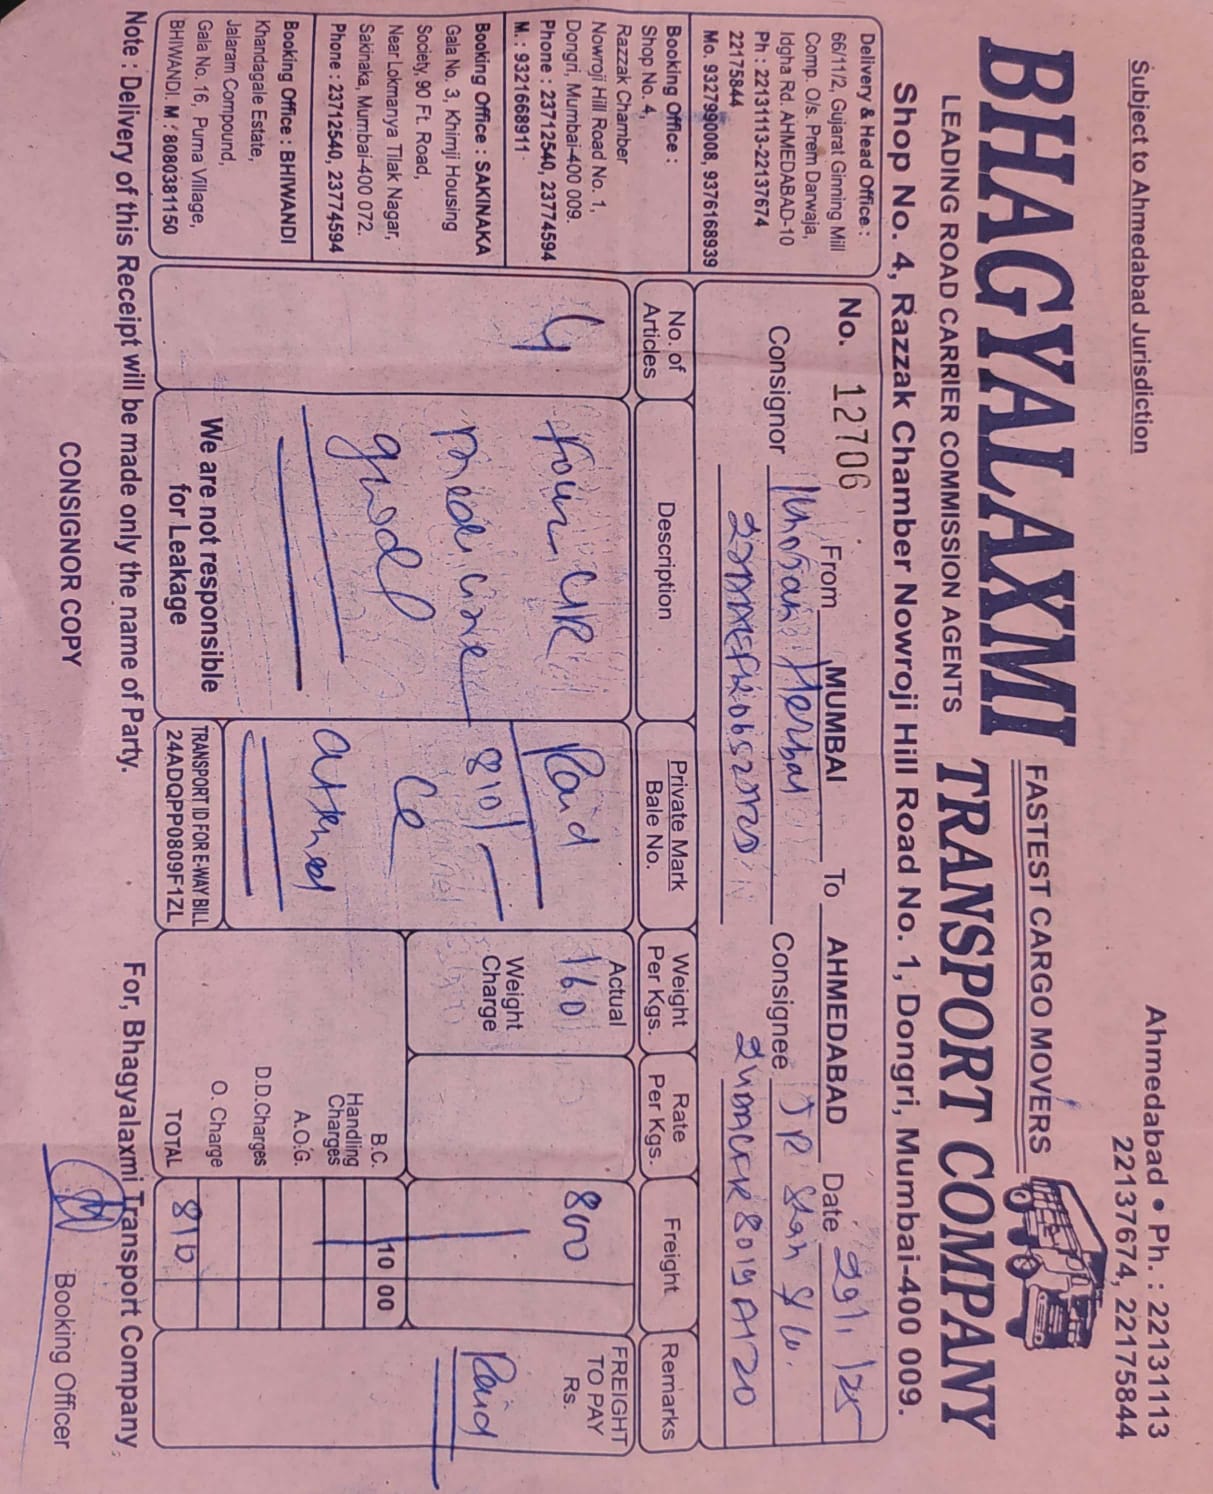 Subject to Ahmedabad Jurisdiction
Ahmedabad • Ph. : 22131113
22137674, 22175844
BHAGYALAXMI
FASTEST CARGO MOVERS
TRANSPORT COMPANY
LEADING ROAD CARRIER COMMISSION AGENTS
Shop No. 4, Razzak Chamber Nowroji Hill Road No. 1, Dongri, Mumbai-400 009.
Delivery & Head Office :
66/11/2, Gujarat Ginning Mill
Comp. O/s. Prem Darwaja,
Idgha Rd. AHMEDABAD-10
Ph : 22131113-22137674
22175844
Mo. 9327990008, 9376168939
Booking Office :
Shop No. 4,
Razzak Chamber
Nowroji Hill Road No. 1,
Dongri, Mumbai-400 009.
Phone : 23712540, 23774594
M. : 9321668911
Booking Office : SAKINAKA
Gala No. 3, Khimji Housing
Society, 90 Ft. Road,
Near Lokmanya Tilak Nagar,
Sakinaka, Mumbai-400 072.
Phone : 23712540, 23774594
Booking Office : BHIWANDI
Khandagale Estate,
Jalaram Compound,
Gala No. 16, Purna Village,
BHIWANDI. M : 8080381150
No. 12706 From MUMBAI To AHMEDABAD Date 29/1/25
Consignor Herbal Consignee
No. of Articles
Description
Private Mark Bale No.
Weight Per Kgs.
Rate Per Kgs.
Freight
Remarks
4
four
medicine
good
Paid
810/-
Actual
160
Weight Charge
800
FREIGHT TO PAY Rs.
Paid
B.C. 10 00
Handling Charges
A.O.G.
D.D.Charges
O. Charge
TOTAL 810
We are not responsible
for Leakage
TRANSPORT ID FOR E-WAY BILL
24ADQPP0809F1ZL
Note : Delivery of this Receipt will be made only the name of Party.
For, Bhagyalaxmi Transport Company
CONSIGNOR COPY
Booking Officer